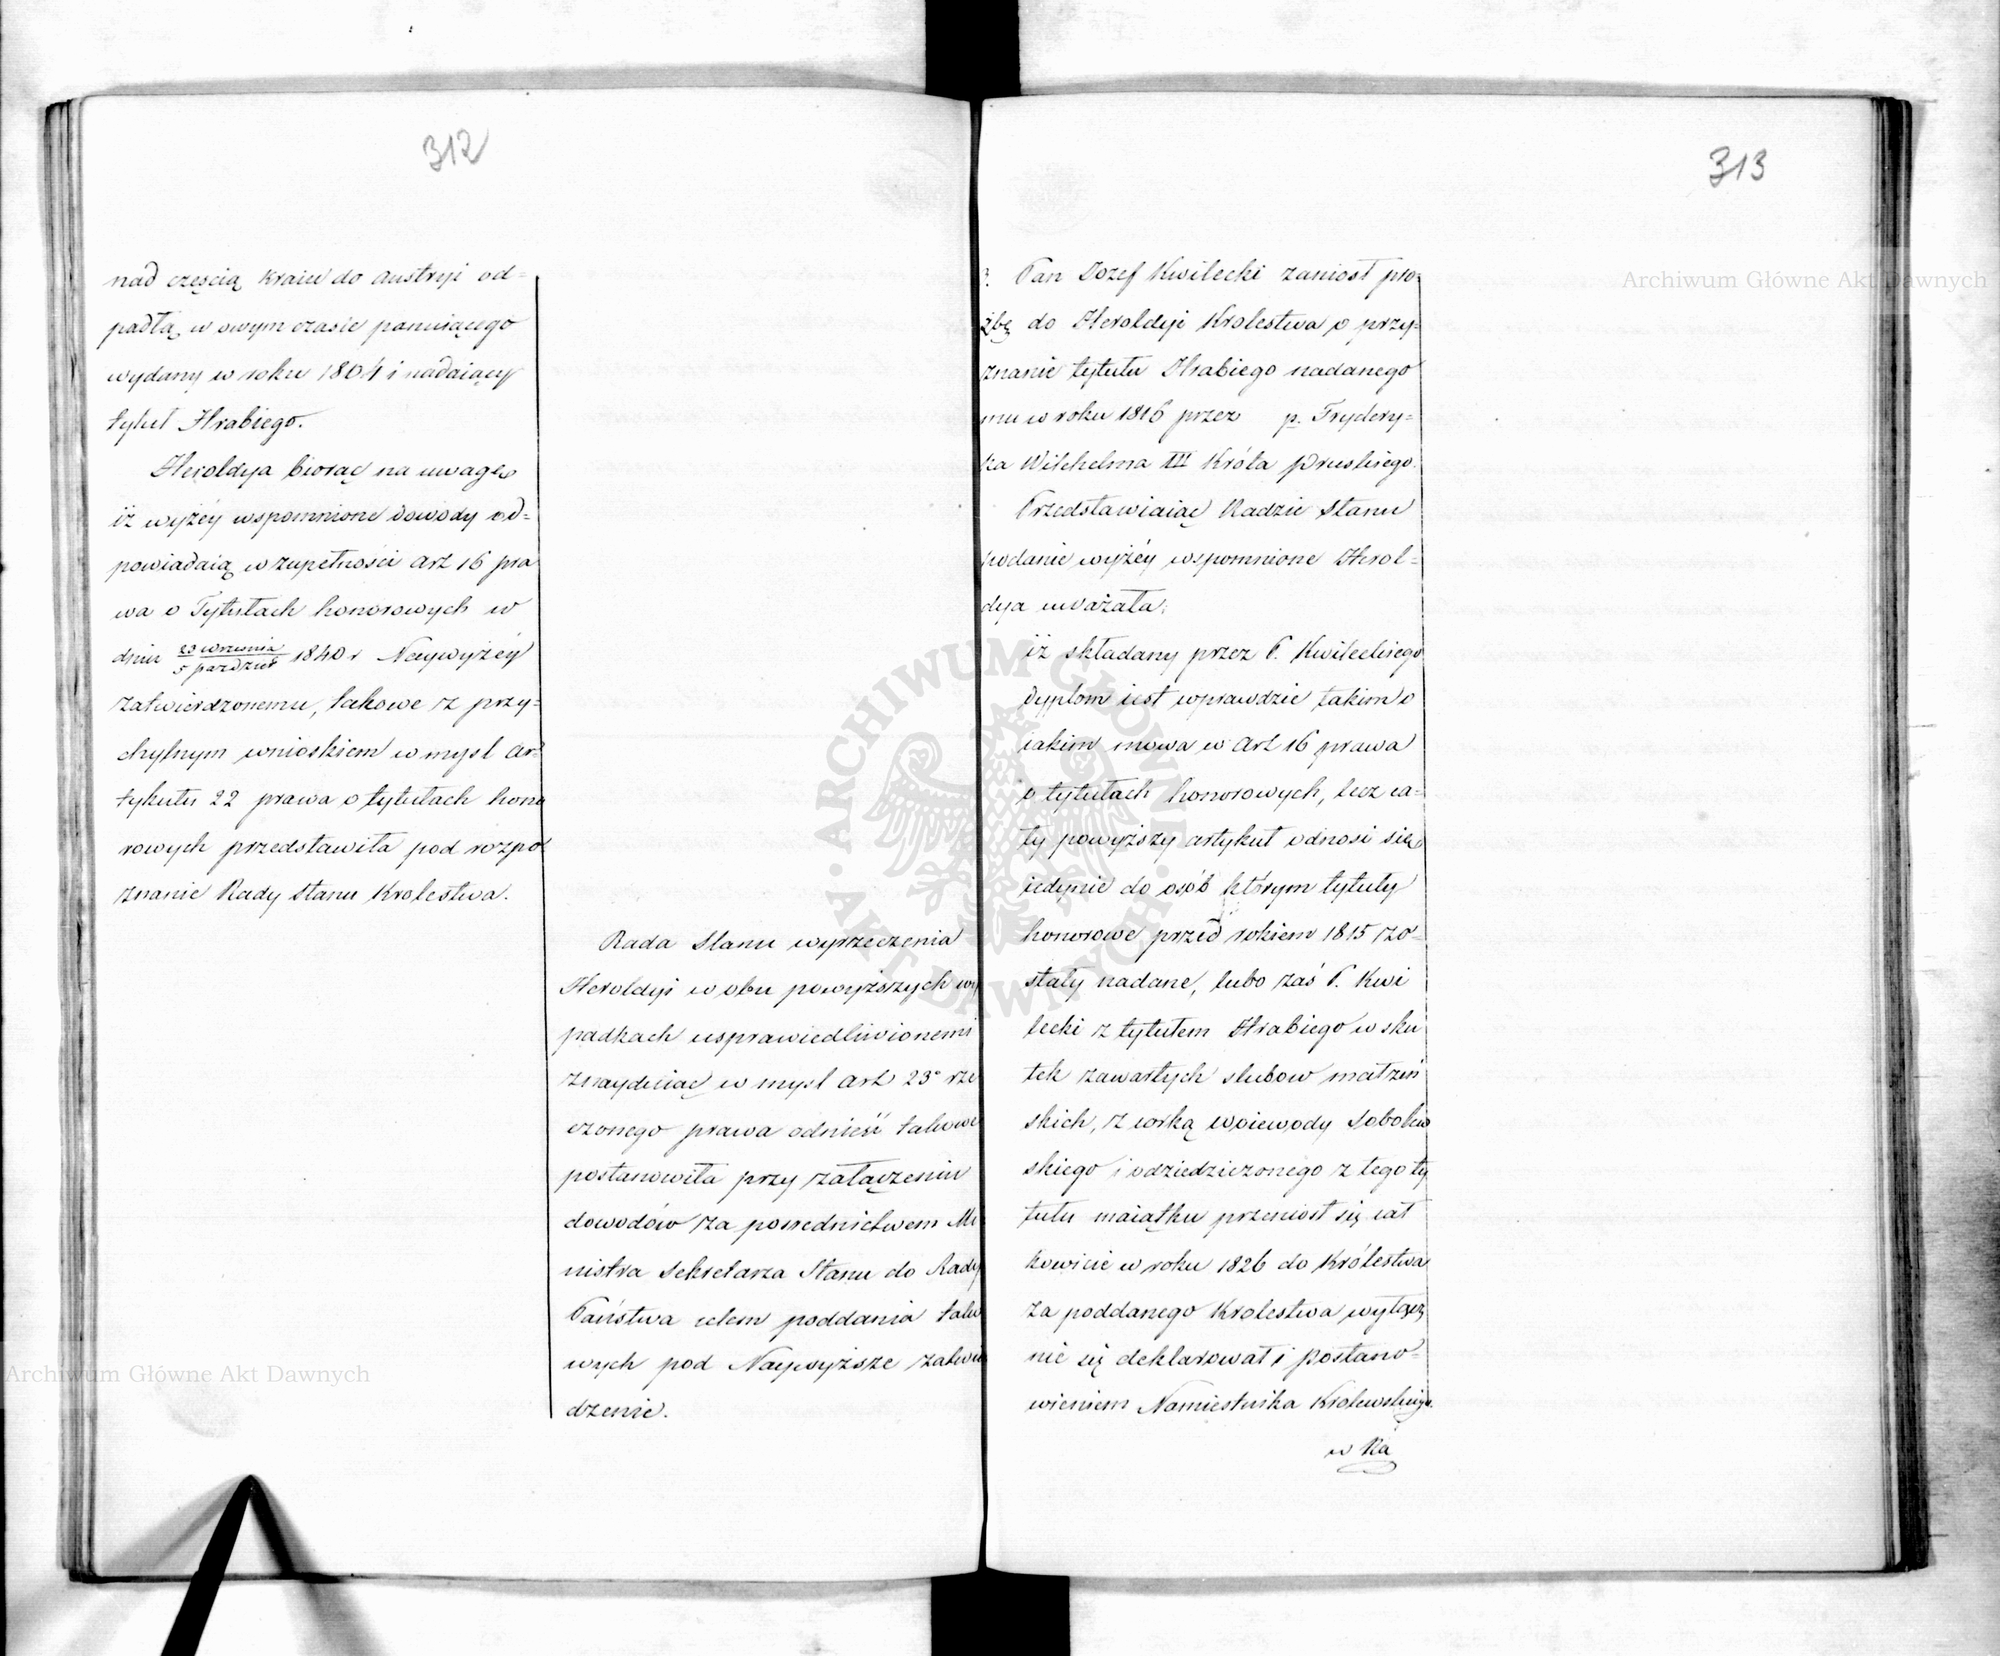 312
nad częścią Kraiu do Austryi od=
padłą w owym czasie panuiącego
wydany w roku 1804 i nadaiący
tytuł Hrabiego.
Heroldya biorąc na uwagę
iż wyżéy wspomnione dowody od=
powiadaią w zupełności Art 16 pra
wa o Tytułach honorowych w
dniu 23 Września / 5 Paździer 1840 r Naywyżéy
zatwierdzonemu, takowe z przy=
chylnym wnioskiem w mysl Ar=
tykułu 22 prawa o tytułach hono
rowych przedstawiła pod rozpo
znanie Rady Stanu Krolestwa.
Rada Stanu wyrzeczenia
Heroldyi w obu powyższych wy
padkach usprawiedliwionemi
znayduiąc w mysl Art 23° rze
czonego prawa odnieść takowe
postanowiła przy załączeniu
dowodów za posrednictwem Mi
nistra Sekretarza Stanu do Rady
Państwa celem poddania tako
wych pod Naywyższe zatwier
dzenie.
313
3. Pan Jozef Kwilecki zaniosł pro=
źbę do Heroldyi Krolestwa o przy=
znanie tytułu Hrabiego nadanego
mu w roku 1816 przez p. Frydery=
ka Wilhelma III Króla Pruskiego.
Przedstawiaiąc Radzie Stanu
podanie wyżéy wspomnione Herol=
dya uważała:
iż składany przez P. Kwileckiego
Dyplom iest wprawdzie takim o
iakim mowa w Art 16 prawa
o tytułach honorowych, lecz ca=
ły powyższy artykuł odnosi się
iedynie do osób którym tytuły
honorowe przed rokiem 1815 zo=
stały nadane, lubo zaś P. Kwi
lecki z tytułem Hrabiego w sku
tek zawartych slubow małżeń
skich, z corką Woiewody Sobolew
skiego i odziedziczonego z tego ty
tułu maiątku przeniosł się cał
kowicie w roku 1826 do Królestwa
za poddanego Krolestwa wyłącz
nie się deklarował i postano=
wieniem Namiestnika Krolewskiego
w Ra
Archiwum Główne Akt Dawnych
Archiwum Główne Akt Dawnych
ARCHIWUM GŁÓWNE AKT DAWNYCH